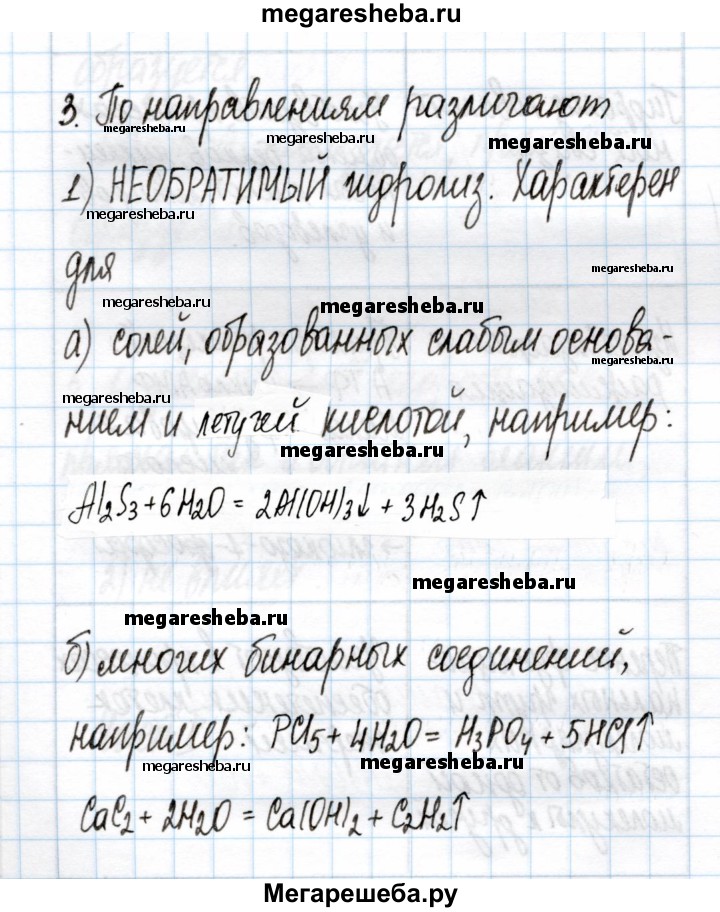 megaresheba.ru
3. По направлениям различают
megaresheba.ru megaresheba.ru megaresheba.ru
1) НЕОБРАТИМЫЙ гидролиз. Характерен
megaresheba.ru
для
megaresheba.ru
megaresheba.ru megaresheba.ru
а) солей, образованных слабым основа-
megaresheba.ru
megaresheba.ru
нием и летучей кислотой, например:
megaresheba.ru
Al2S3+6H2O = 2Al(OH)3↓ + 3H2S↑
megaresheba.ru
megaresheba.ru
б) многих бинарных соединений,
например: PCl5+4H2O= H3PO4+5HCl↑
megaresheba.ru megaresheba.ru
CaC2+2H2O = Ca(OH)2 + C2H2↑
Мегарешеба.ру